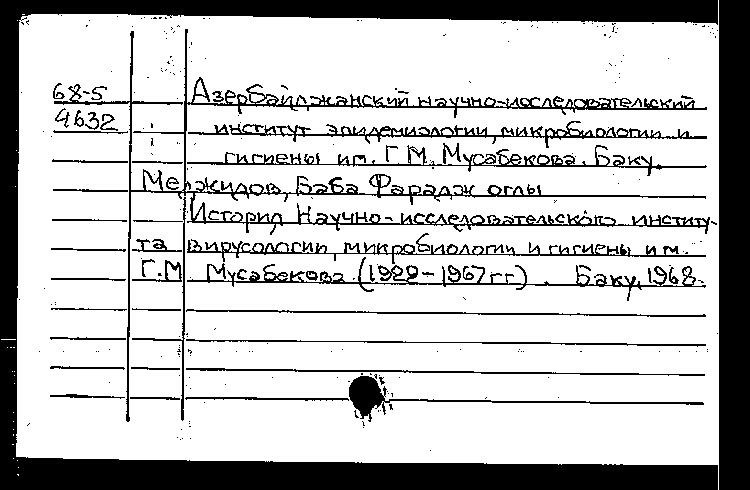 68-5 Азербайджанский научно-исследовательский
4632 институт эпидемиологии, микробиологии и
гигиены им. Г.М. Мусабекова. Баку.
Меджидов, Баба Фарадж оглы
История Научно-исследовательского институ-
та вирусологии, микробиологии и гигиены им.
Г.М Мусабекова (1929-1967гг). Баку, 1968.